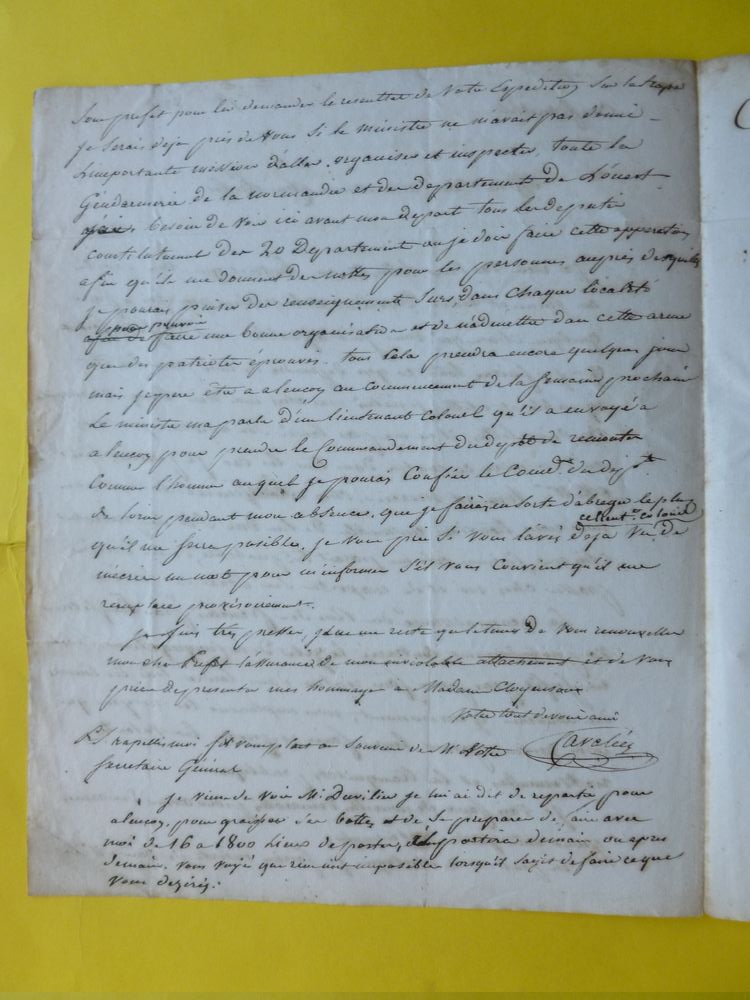 Sous prefet pour lui demander le resultat de votre Expedition sur la trape
je serais deja près de vous si le ministre ne mavait pas donné
L'importante mission d'aller organiser et inspecter toute la
Gendarmerie de la normandie et des departements de L'ouest
j'ai besoin de voir ici avant mon depart tous les deputés
des 20 Departement ou je dois faire cette
afin qu'ils me donnent des nottes pour les personnes auprès desquelles
je pourais puiser des renseignements surs dans chaque localité
pour pouvoir
afin de faire une bonne organisation et de n'admettre dans cette arme
que des patriotes éprouvés. tous cela prendra encore quelques jour
mais jespere être a alencon au commencement de la semaine prochain
Le ministre ma parlé d'un lieutenant colonel qu'il a envoyé a
alencon pour prendre le Commandement du depot de remonte
comme l'homme auquel je pourais confier le Comdt. du dept.
de lorne pendant mon absence. que je fairai en sorte d'abreger le plus
ce lieut. colonel
qu'il me sera posible. je vous prie si vous lavés deja vu de
mécrire un mot pour m'informer s'il vous convient qu'il me
remplace provisoirement.
je suis très presser, il ne me reste que le tems de vous renouveller
mon cher Prefet l'assurance de mon inviolable attachement et de vous
prier de presenter mes hommages a Madame Clogenson
votre tout devoué ami
Cavalié
PS rapellés moi s'il vous plait au souvenir de Mr Votre
Secretaire Géneral
je viens de voir Mr je lui ai dit de repartir pour
alencon, pour graisser ses bottes et de se preparer de faire avec
moi de 16 a 1800 lieues de postes, il partira demain ou apres
demain. vous voyé que rien n'est imposible lorsqu'il sagit de faire ce que
vous desirés.